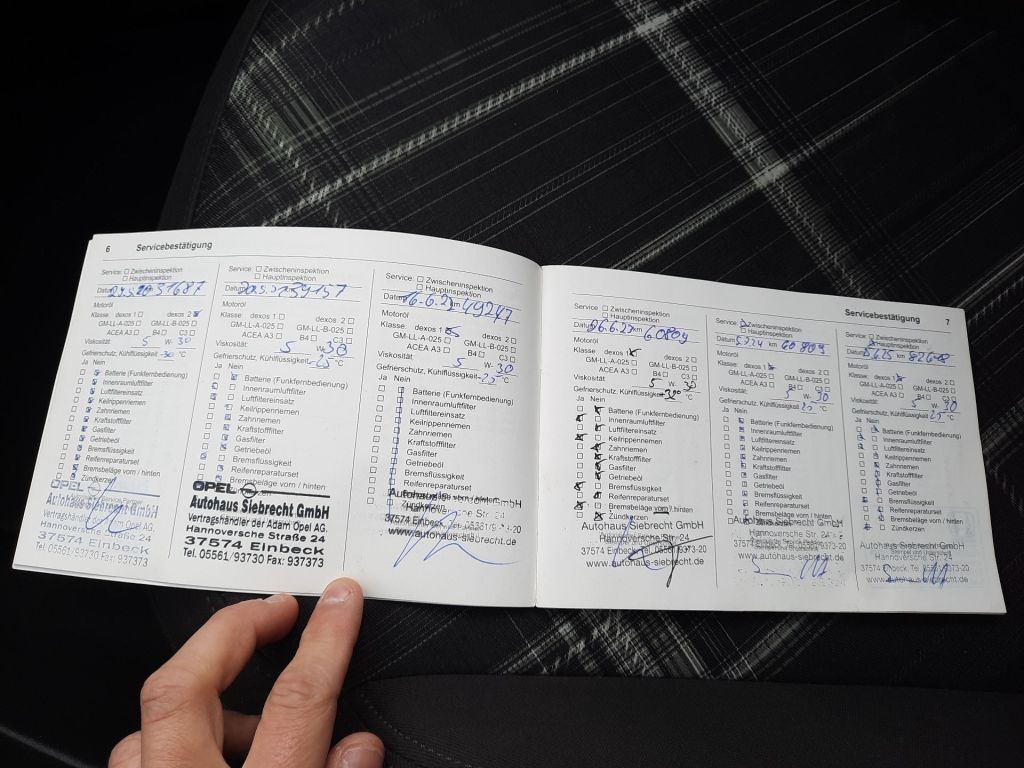 6 Servicebestätigung
Service: Zwischeninspektion
Hauptinspektion
Datum km 31687
Motoröl
Klasse: dexos 1 dexos 2
GM-LL-A-025 GM-LL-B-025
ACEA A3 B4 C3
Viskosität 5 W- 30
Gefrierschutz, Kühlflüssigkeit -30 °C
Ja Nein
Batterie (Funkfernbedienung)
Innenraumluftfilter
Luftfiltereinsatz
Keilrippenriemen
Zahnriemen
Kraftstofffilter
Gasfilter
Getriebeöl
Bremsflüssigkeit
Reifenreparaturset
Bremsbeläge vorn / hinten
Zündkerzen
OPEL
Autohaus Siebrecht GmbH
Vertragshändler der Adam Opel AG.
Hannoversche Straße 24
37574 Einbeck
Tel. 05561/93730 Fax: 937373
Service: Zwischeninspektion
Hauptinspektion
Datum 39157
Motoröl
Klasse: dexos 1 dexos 2
GM-LL-A-025 GM-LL-B-025
ACEA A3 B4 C3
Viskosität: 5 W- 30
Gefrierschutz, Kühlflüssigkeit -25 °C
Ja Nein
Batterie (Funkfernbedienung)
Innenraumluftfilter
Luftfiltereinsatz
Keilrippenriemen
Zahnriemen
Kraftstofffilter
Gasfilter
Getriebeöl
Bremsflüssigkeit
Reifenreparaturset
Bremsbeläge vorn / hinten
OPEL
Autohaus Siebrecht GmbH
Vertragshändler der Adam Opel AG.
Hannoversche Straße 24
37574 Einbeck
Tel. 05561/93730 Fax: 937373
Service: Zwischeninspektion
Hauptinspektion
Datum 49247
Motoröl
Klasse: dexos 1 dexos 2
GM-LL-A-025 GM-LL-B-025
ACEA A3 B4 C3
Viskosität 5 W- 30
Gefrierschutz, Kühlflüssigkeit -25 °C
Ja Nein
Batterie (Funkfernbedienung)
Innenraumluftfilter
Luftfiltereinsatz
Keilrippenriemen
Zahnriemen
Kraftstofffilter
Gasfilter
Getriebeöl
Bremsflüssigkeit
Reifenreparaturset
Zündkerzen
Autohaus Siebrecht GmbH
Hannoversche Str. 24
37574 Einbeck
www.autohaus-siebrecht.de
Servicebestätigung 7
Service: Zwischeninspektion
Hauptinspektion
Datum km 60809
Motoröl
Klasse dexos 1 dexos 2
GM-LL-A-025 GM-LL-B-025
ACEA A3 B4 C3
Viskosität 5 W- 30
Gefrierschutz, Kühlflüssigkeit °C
Ja Nein
Batterie (Funkfernbedienung)
Innenraumluftfilter
Luftfiltereinsatz
Keilrippenriemen
Zahnriemen
Kraftstofffilter
Gasfilter
Getriebeöl
Bremsflüssigkeit
Reifenreparaturset
Bremsbeläge vorn / hinten
Zündkerzen
Autohaus Siebrecht GmbH
Hannoversche Str. 24
37574 Einbeck Tel. 05561/9373-20
www.autohaus-siebrecht.de
Service: Zwischeninspektion
Hauptinspektion
Datum km 60809
Motoröl
Klasse: dexos 1 dexos 2
GM-LL-A-025 GM-LL-B-025
ACEA A3 B4 C3
Viskosität 5 W- 30
Gefrierschutz, Kühlflüssigkeit 25 °C
Ja Nein
Batterie (Funkfernbedienung)
Innenraumluftfilter
Luftfiltereinsatz
Keilrippenriemen
Zahnriemen
Kraftstofffilter
Gasfilter
Getriebeöl
Bremsflüssigkeit
Reifenreparaturset
Bremsbeläge vorn / hinten
Autohaus Siebrecht GmbH
Hannoversche Str. 24
Service: Zwischeninspektion
Hauptinspektion
Datum km
Motoröl
Klasse: dexos 1 dexos 2
GM-LL-A-025 GM-LL-B-025
ACEA A3 B4 C3
Viskosität: 5 W- 30
Gefrierschutz, Kühlflüssigkeit 25 °C
Ja Nein
Batterie (Funkfernbedienung)
Innenraumluftfilter
Luftfiltereinsatz
Keilrippenriemen
Zahnriemen
Kraftstofffilter
Gasfilter
Getriebeöl
Bremsflüssigkeit
Reifenreparaturset
Bremsbeläge vorn / hinten
Zündkerzen
Autohaus Siebrecht GmbH
37574 Einbeck Tel. 05561/9373-20
www.autohaus-siebrecht.de